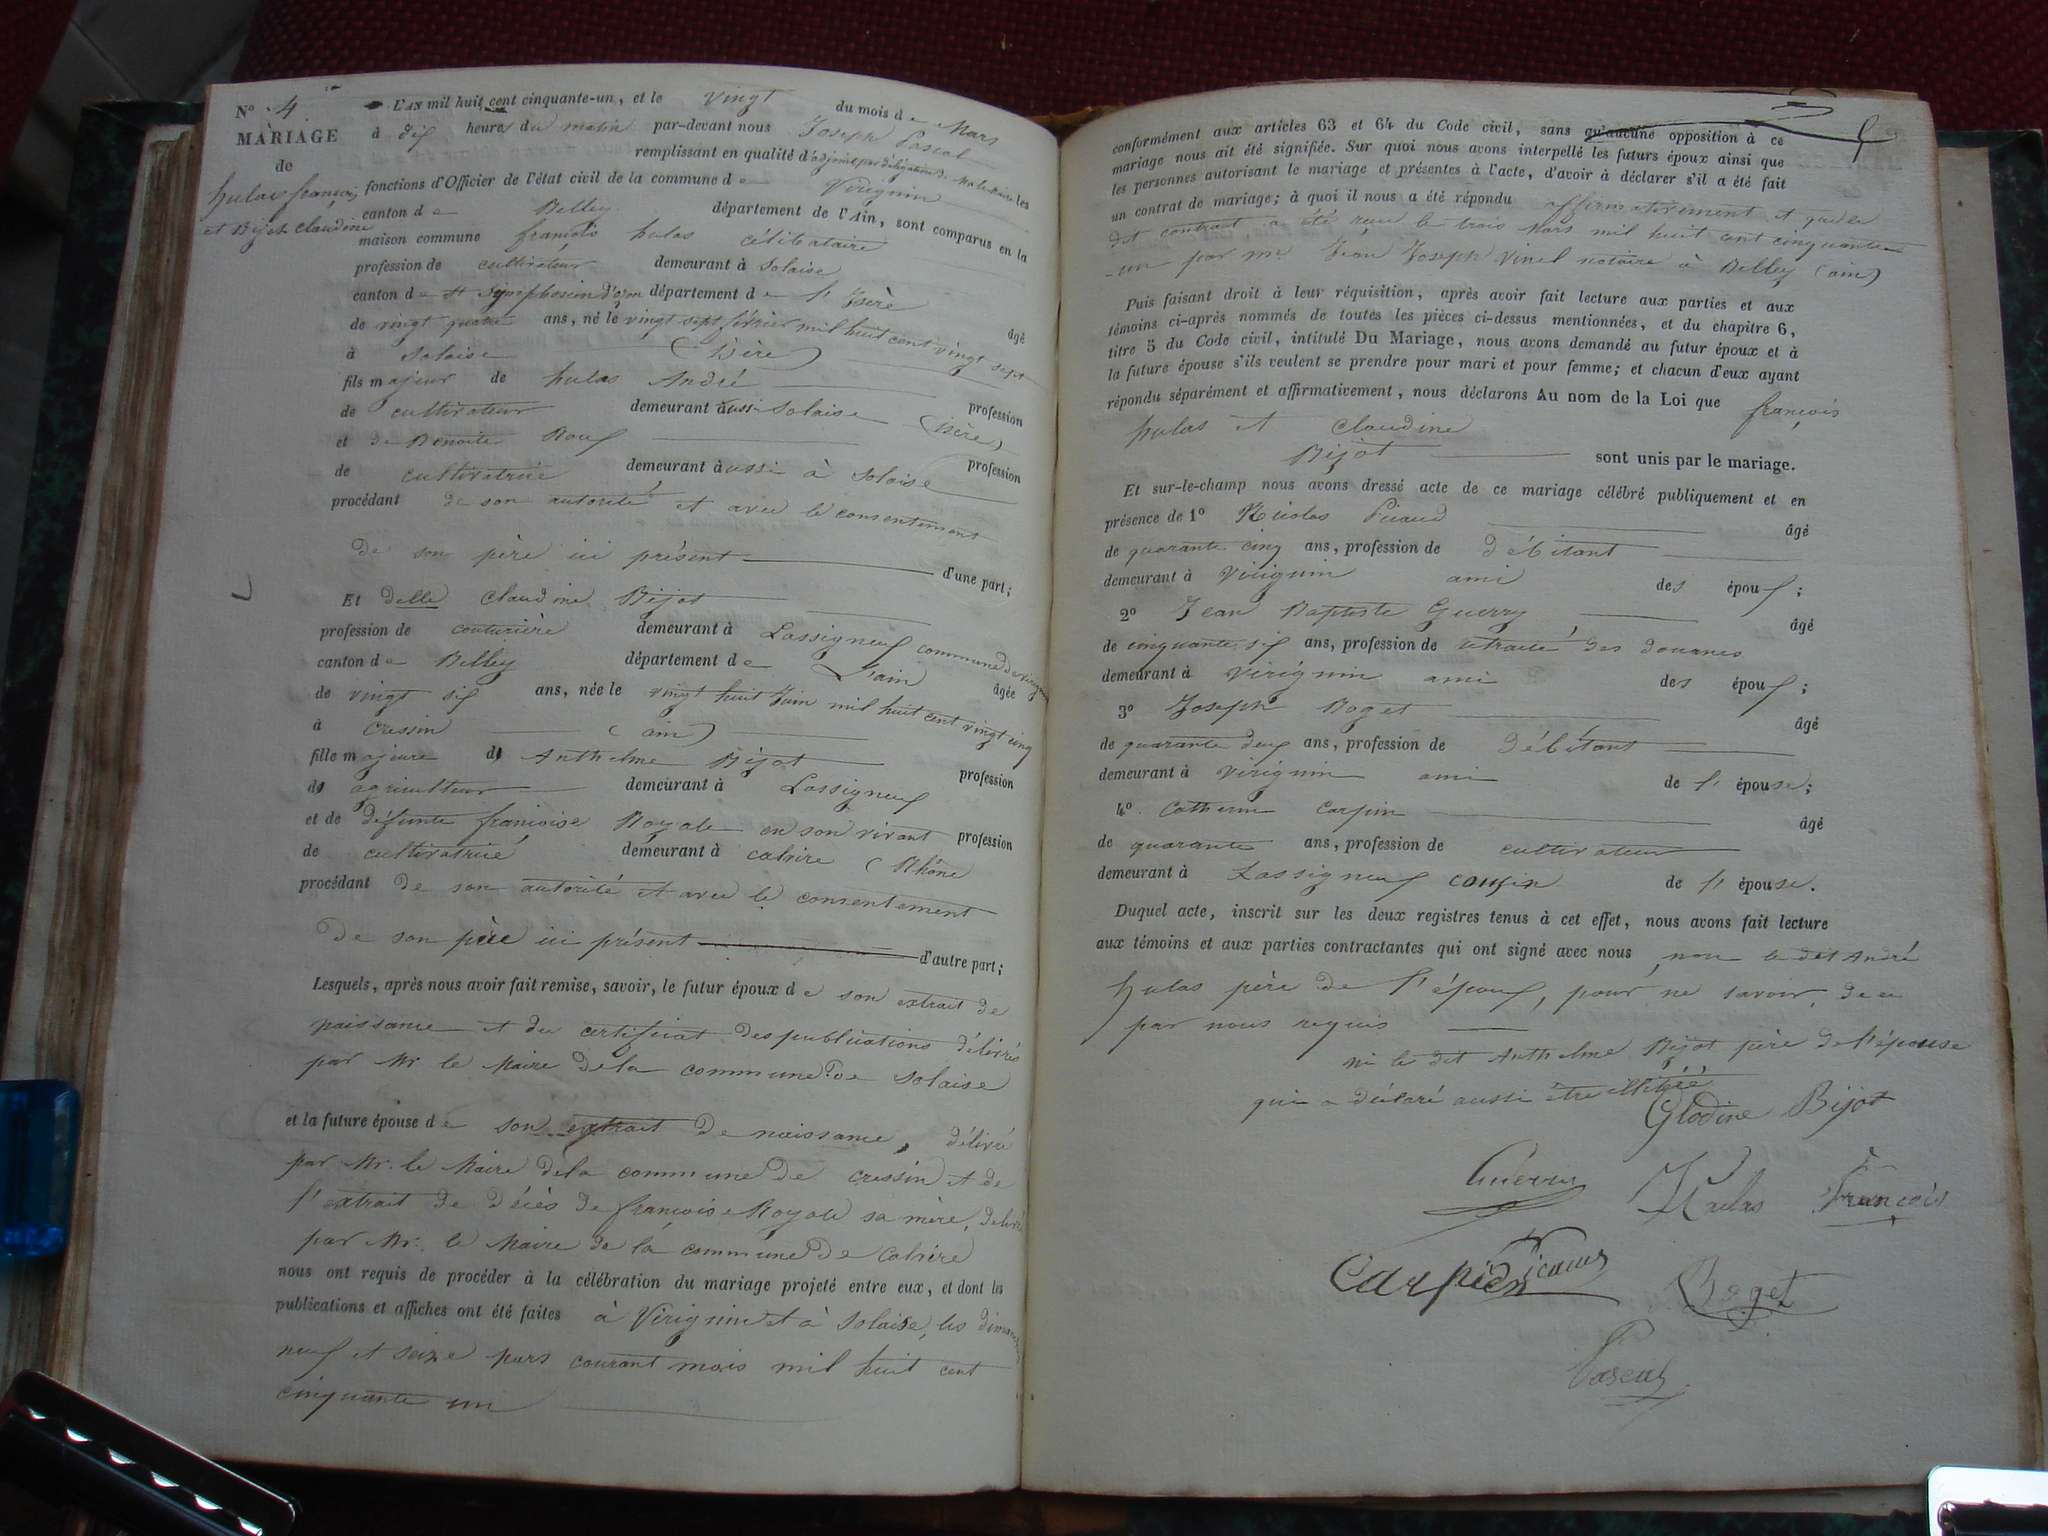 N° 4
MARIAGE
de
hulas françois
et Bijot claudine
L'AN mil huit cent cinquante-un, et le vingt du mois de Mars
à dix heures du matin par-devant nous Joseph Pascal
remplissant en qualité d'adjoint par délégation de Mr le Maire les
fonctions d'Officier de l'état civil de la commune de Virignin
canton de Belley département de l'Ain, sont comparus en la
maison commune françois hulas célibataire
profession de cultivateur demeurant à Solaise
canton de St Symphorien d'ozon département de l'Isère âgé
de vingt quatre ans, né le vingt sept février mil huit cent vingt sept
à Solaise (Isère)
fils majeur de hulas André profession
de cultivateur demeurant aussi Solaise (Isère)
et de Benoite Roux profession
de cultivatrice demeurant aussi à Solaise
procédant de son autorité et avec le consentement
de son père ici présent d'une part;
Et delle Claudine Bijot
profession de couturière demeurant à Lassigneux commune de Virignin
canton de Belley département de L'ain âgée
de vingt six ans, née le vingt huit Juin mil huit cent vingt cinq
à Cressin (ain)
fille majeure de Anthelme Bijot profession
de agriculteur demeurant à Lassigneux
et de défunte françoise Royale en son vivant profession
de cultivatrice demeurant à caluire (Rhône
procédant de son autorité et avec le consentement
de son père ici présent d'autre part;
Lesquels, après nous avoir fait remise, savoir, le futur époux de son extrait de
naissance et du certificat des publications délivrés
par Mr le Maire de la commune de Solaise
et la future épouse de son extrait de naissance, délivré
par Mr. le Maire de la commune de Cressin et de
l'extrait de décès de françoise Royale sa mère, délivré
par Mr. le Maire de la commune de Caluire
nous ont requis de procéder à la célébration du mariage projeté entre eux, et dont les
publications et affiches ont été faites à Virignin et à Solaise, les dimanches
neuf et seize mars courant mois mil huit cent
cinquante un
conformément aux articles 63 et 64 du Code civil, sans qu'aucune opposition à ce
mariage nous ait été signifiée. Sur quoi nous avons interpellé les futurs époux ainsi que
les personnes autorisant le mariage et présentes à l'acte, d'avoir à déclarer s'il a été fait
un contrat de mariage; à quoi il nous a été répondu affirmativement et que le
dit contrat a été reçu le trois Mars mil huit cent cinquante
-un par me Jean Joseph Vinel notaire à Belley (ain)
Puis faisant droit à leur réquisition, après avoir fait lecture aux parties et aux
témoins ci-après nommés de toutes les pièces ci-dessus mentionnées, et du chapitre 6,
titre 5 du Code civil, intitulé Du Mariage, nous avons demandé au futur époux et à
la future épouse s'ils veulent se prendre pour mari et pour femme; et chacun d'eux ayant
répondu séparément et affirmativement, nous déclarons Au nom de la Loi que françois
hulas et Claudine
Bijot sont unis par le mariage.
Et sur-le-champ nous avons dressé acte de ce mariage célébré publiquement et en
présence de 1° Nicolas Picaud âgé
de quarante cinq ans, profession de débitant
demeurant à Virignin ami des époux;
2° Jean Baptiste Guerry âgé
de cinquante six ans, profession de retraité des douanes
demeurant à Virignin ami des époux;
3° Joseph Boget âgé
de quarante deux ans, profession de débitant
demeurant à Virignin ami de l'épouse;
4° Catherin Carpin âgé
de quarante ans, profession de cultivateur
demeurant à Lassigneux cousin de l'épouse.
Duquel acte, inscrit sur les deux registres tenus à cet effet, nous avons fait lecture
aux témoins et aux parties contractantes qui ont signé avec nous, non le dit André
hulas père de l'époux, pour ne savoir, de ce
par nous requis
ni le dit Anthelme Bijot père de l'épouse
qui a déclaré aussi être illitéré
Glodine Bijot
Guerry Hulas François
Carpin Picaud
Boget
Pascal